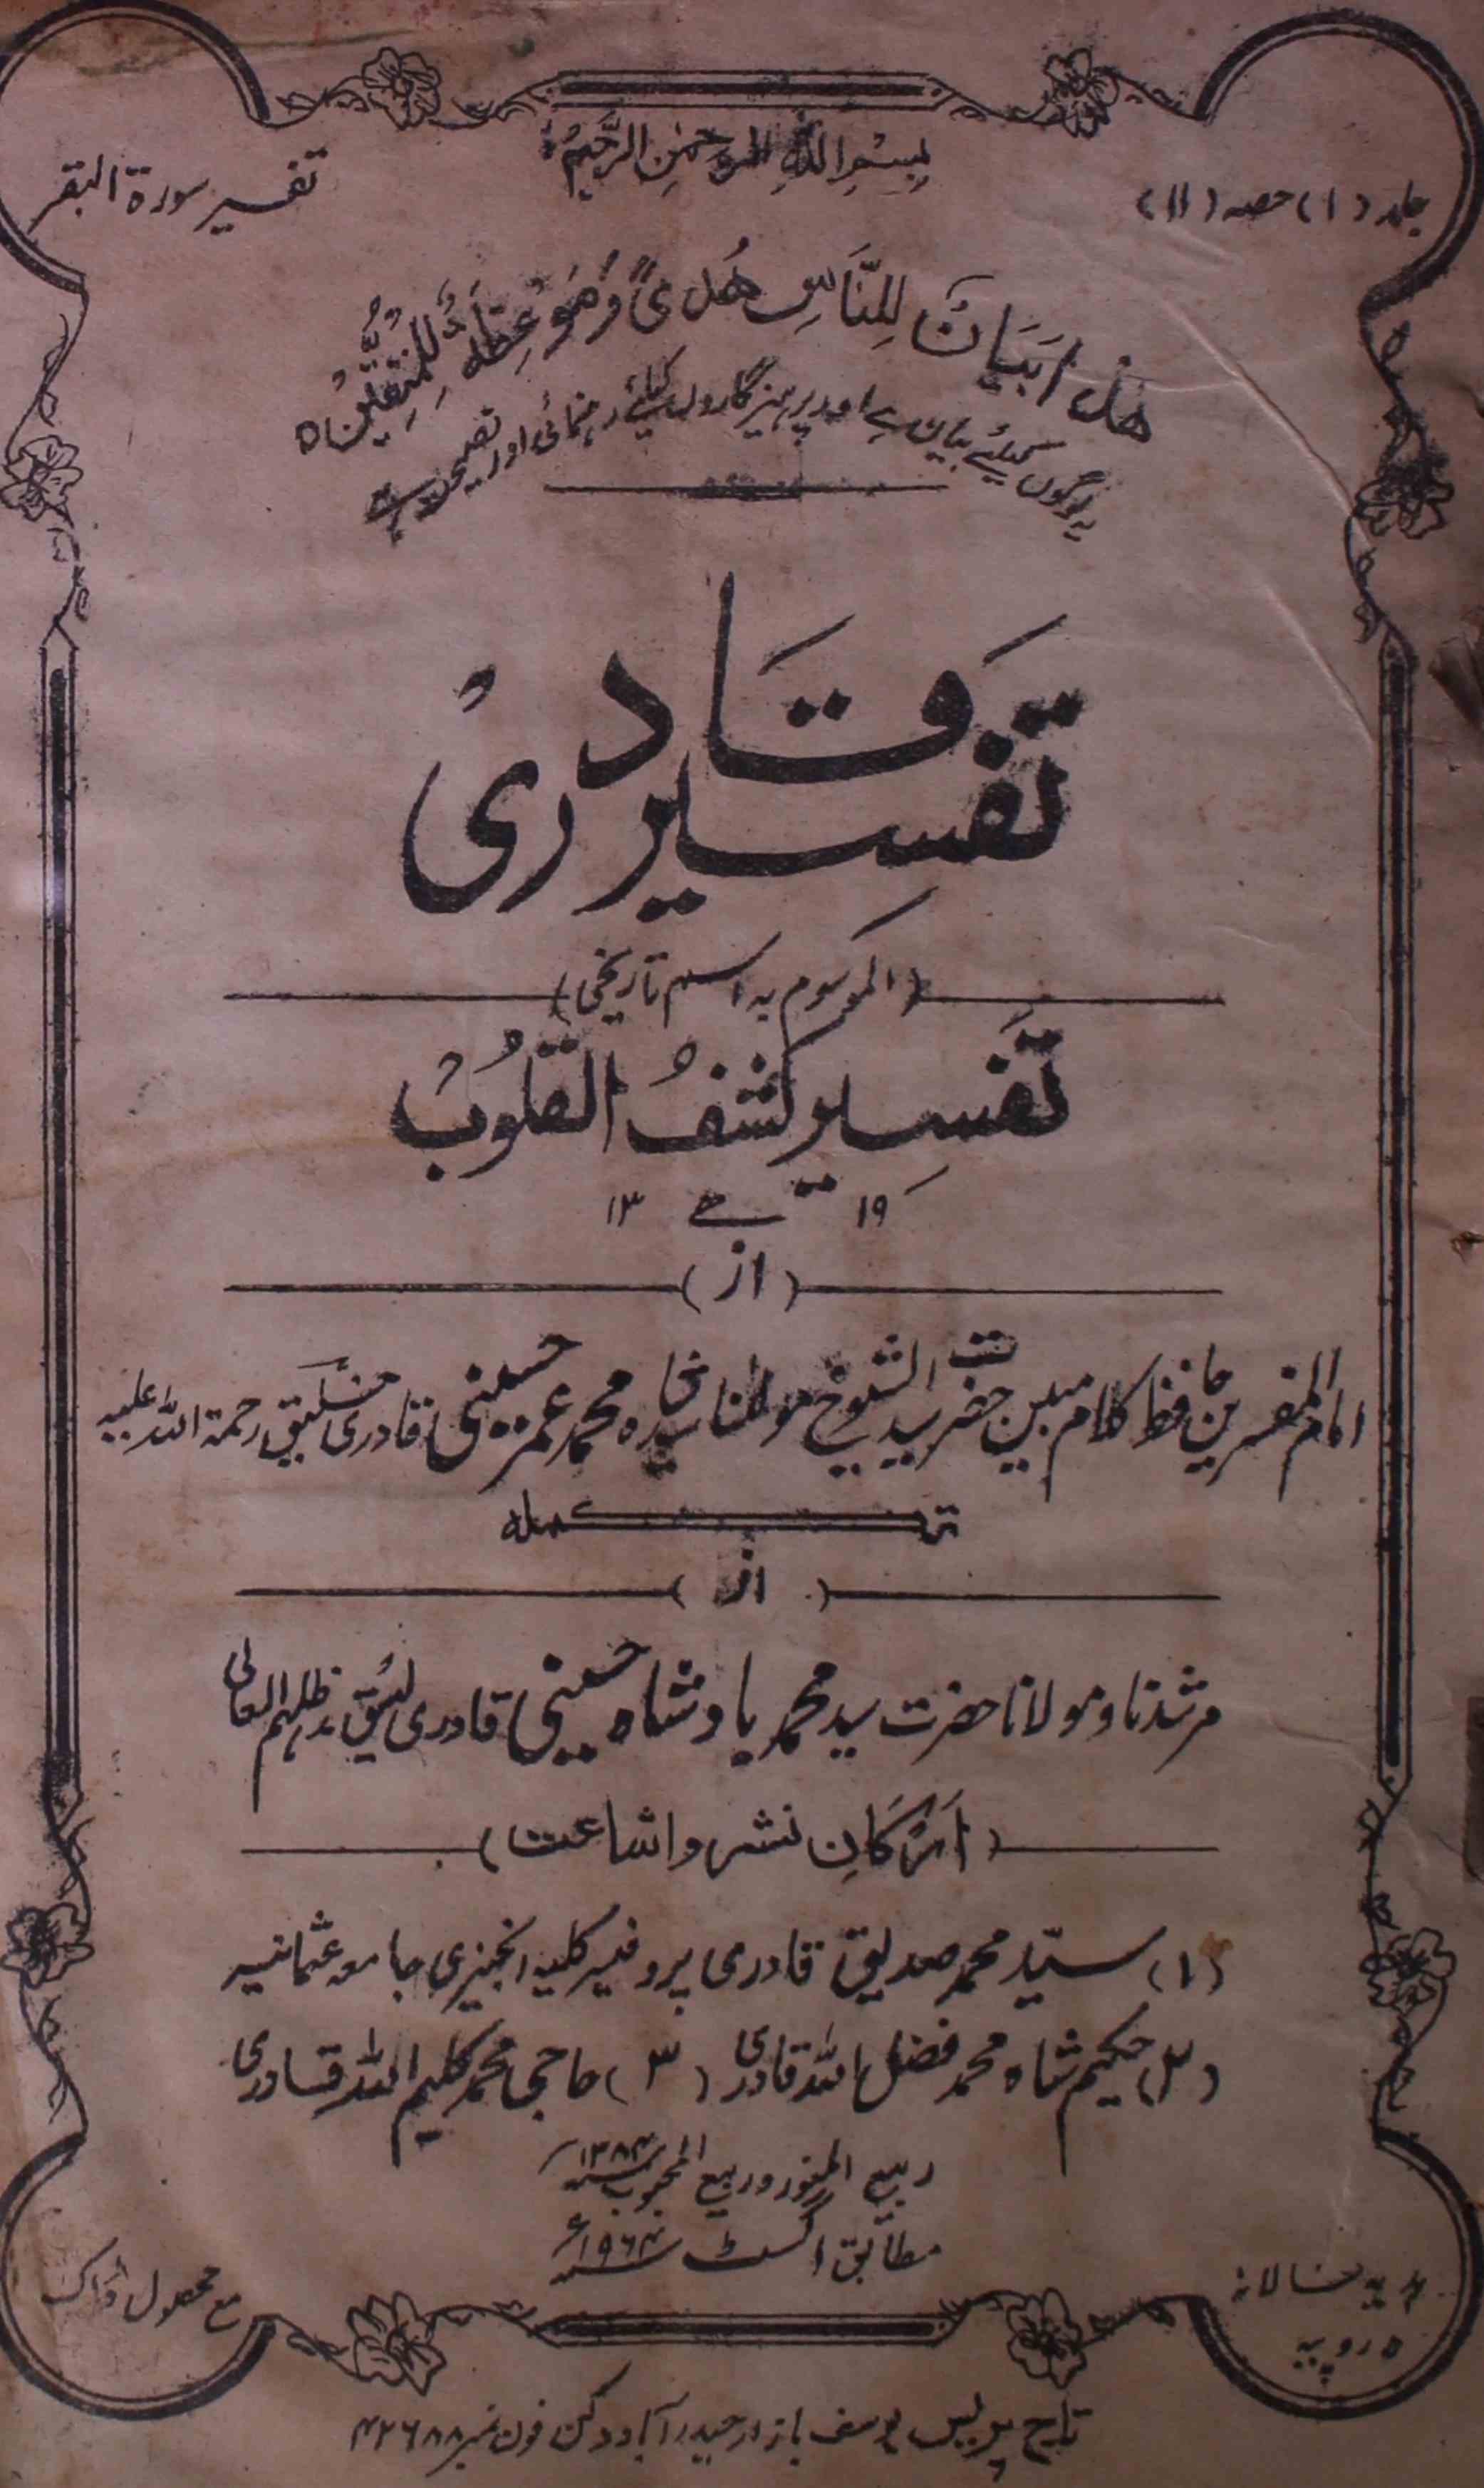 بِسْمِ اللہِ الرَّحْمٰنِ الرَّحِیْمِ
جلد (۱) حصہ (۱۱)
تفسیر سورۃ البقر
ھٰذَا بَیَانٌ لِلنَّاسِ ھُدًی وَّمَوْعِظَۃٌ لِّلْمُتَّقِیْنَ ہ
یہ لوگوں کیلئے بیان ہے اور پرہیزگاروں کیلئے رہنمائی اور نصیحت ہے
تفسیر قادری
(الموسوم بہ اسم تاریخی)
تفسیر کشف القلوب
۱۹ ھ ۱۳
(از)
امام المفسرین حافظ کلام مبین حضرت سید الشیوخ مولٰنا سید شاہ محمد عمر حسینی قادری خلیق رحمۃ اللہ علیہ
تکملہ
(از)
مرشدنا و مولانا حضرت سید محمد بادشاہ حسینی قادری لئیق مدظلہم العالی
(ارکان نشر و اشاعت)
(۱) سید محمد صدیق قادری پروفیسر کلیہ انجنیری جامعہ عثمانیہ
(۲) حکیم شاہ محمد فضل اللہ قادری (۳) حاجی محمد کلیم اللہ قادری
ربیع المنور و ربیع المحبوب ۱۳۸۴ھ
مطابق اگسٹ ۱۹۶۴ء
ہدیہ سالانہ
۵ روپیہ
مع محصول ڈاک
تاج پریس یوسف بازار حیدرآباد دکن فون نمبر ۴۲۶۸۸